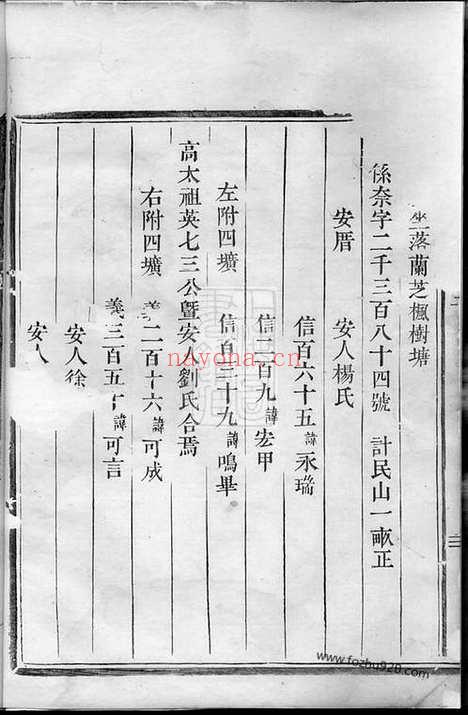 坐落蘭芝楓樹塘
係奈字二千三百八十四號 計民山一畝正
安厝 安人楊氏
信百六十五諱永瑞
信 百九諱宏甲
左附四壙 信百三十九諱鳴畢
高太祖英七三公暨安 劉氏合焉
右附四壙 義二百十六諱可成
義三百五十諱可言
安人徐
安人
nayona.cn
www.fozhu920.com